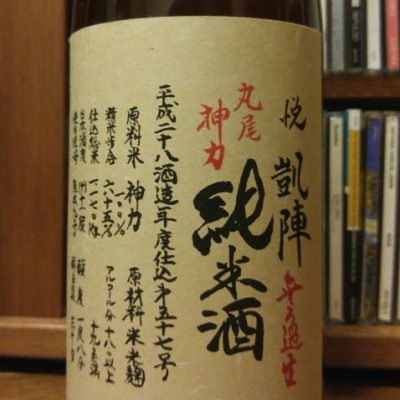 悦 凱陣
無ろ過生
丸尾
神力
純米酒
平成二十八酒造年度仕込第五十七号
原料米 神力 一〇〇%
原材料 米 米麹
精米歩合 六十五%
アルコール分 十八以上
仕込総米 一一七〇kg
十九未満
日本酒度
酸度